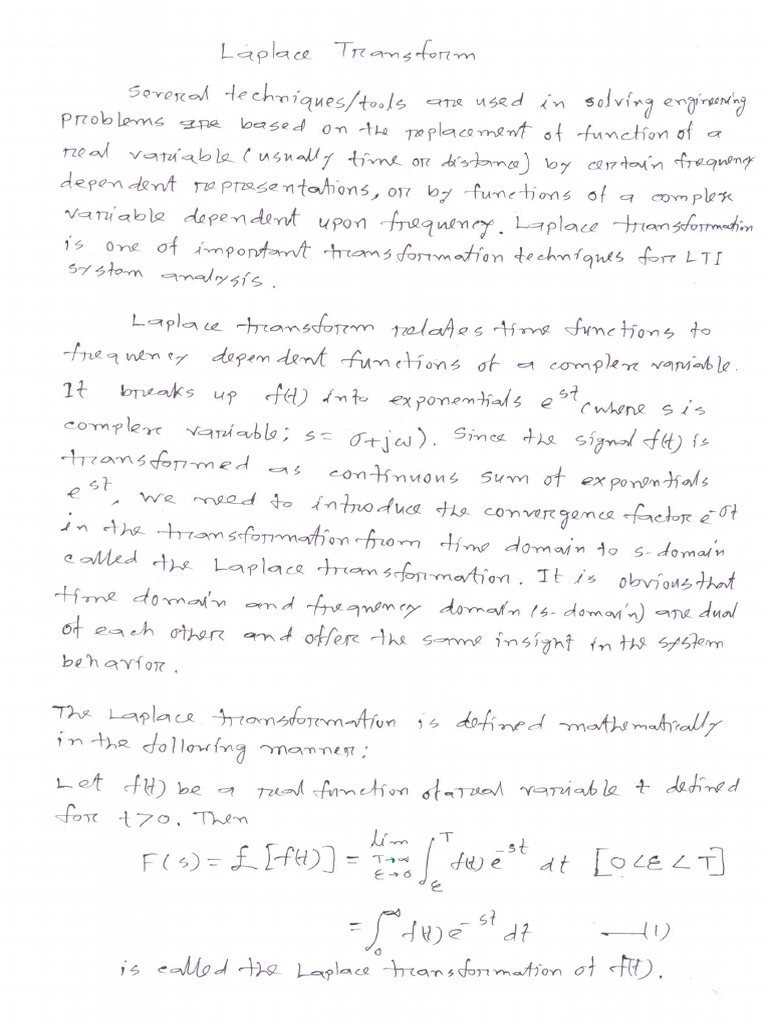 Laplace Transform
Several techniques/tools are used in solving engineering
problems are based on the replacement of function of a
real variable (usually time or distance) by certain frequency
dependent representations, or by functions of a complex
variable dependent upon frequency. Laplace transformation
is one of important transformation techniques for LTI
system analysis.
Laplace transform relates time functions to
frequency dependent functions of a complex variable.
It breaks up f(t) into exponentials e^st (where s is
complex variable; s = σ+jω). Since the signal f(t) is
transformed as continuous sum of exponentials
e^st, we need to introduce the convergence factor e^-σt
in the transformation from time domain to s-domain
called the Laplace transformation. It is obvious that
time domain and frequency domain (s-domain) are dual
of each other and offer the same insight in the system
behavior.
The Laplace transformation is defined mathematically
in the following manner:
Let f(t) be a real function of a real variable t defined
for t>0. Then
F(s) = £[f(t)] = lim T→∞ ε→0 ∫_ε^T f(t) e^-st dt [0<ε<T]
= ∫_0^∞ f(t) e^-st dt —(1)
is called the Laplace transformation of f(t).